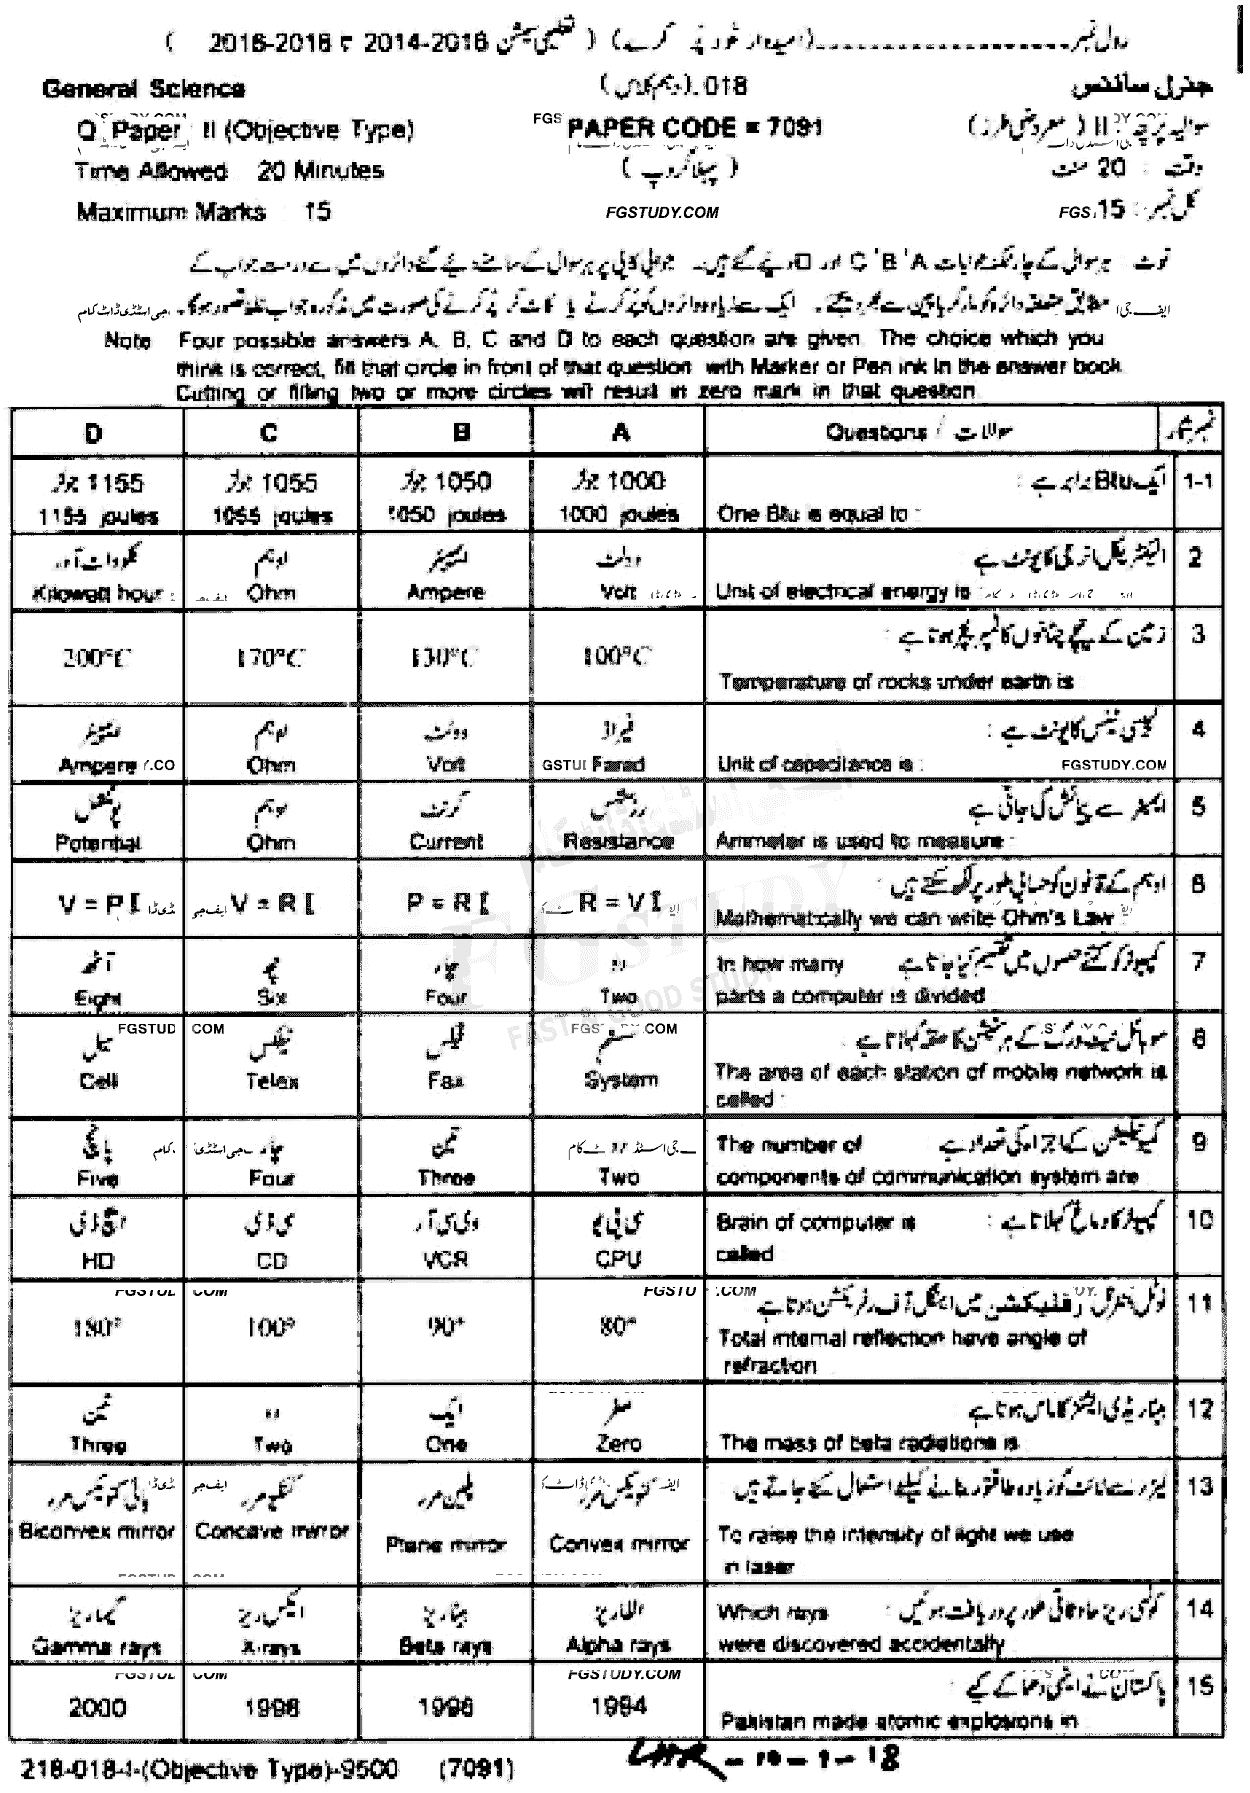 رول نمبر --------------------(امیدوار خود پُر کرے) ( تعلیمی سیشن 2014-2016 تا 2016-2018 )
General Science 018.(دہم کلاس) جنرل سائنس
Q Paper II (Objective Type) PAPER CODE = 7091 سوالیہ پرچہ : II ( معروضی طرز )
Time Allowed 20 Minutes ( پہلا گروپ ) وقت : 20 منٹ
Maximum Marks : 15 FGSTUDY.COM کل نمبر : 15
نوٹ : ہر سوال کے چار ممکنہ جوابات A' B' C اور D دیئے گئے ہیں۔ جوابی کاپی پر ہر سوال کے سامنے دیئے گئے دائروں میں سے درست جواب کے
مطابق متعلقہ دائرہ کو مارکر یا پین سے بھر دیجئے۔ ایک سے زیادہ دائروں کو پُر کرنے یا کاٹ کر پُر کرنے کی صورت میں مذکورہ جواب غلط تصور ہوگا۔
Note Four possible answers A, B, C and D to each question are given. The choice which you
think is correct, fill that circle in front of that question with Marker or Pen ink in the answer book
Cutting or filling two or more circles will result in zero mark in that question
D C B A Questions / سوالات نمبر شمار
1155 جولز 1055 جولز 1050 جولز 1000 جولز ایک Btu برابر ہے : 1-1
1155 joules 1055 joules 1050 joules 1000 joules One Btu is equal to :
کلو واٹ آور اوہم ایمپیئر وولٹ الیکٹریکل انرجی کا یونٹ ہے 2
Kilowatt hour Ohm Ampere Volt Unit of electrical energy is
زمین کے نیچے چٹانوں کا ٹمپریچر ہوتا ہے : 3
200°C 170°C 130°C 100°C
Temperature of rocks under earth is
ایمپیئر اوہم وولٹ فیراڈ کپیسی ٹینس کا یونٹ ہے : 4
Ampere Ohm Volt Farad Unit of capacitance is : FGSTUDY.COM
پوٹینشل اوہم کرنٹ رزسٹینس ایمیٹر سے پیمائش کی جاتی ہے 5
Potential Ohm Current Resistance Ammeter is used to measure :
اوہم کے قانون کو حسابی طور پر لکھ سکتے ہیں: 6
V = P I V = R I P = R I R = V I
Mathematically we can write Ohm's Law
آٹھ چھ چار دو In how many کمپیوٹر کو کتنے حصوں میں تقسیم کیا جاتا ہے 7
Eight Six Four Two parts a computer is divided
سیل ٹیلکس فیکس سسٹم موبائل نیٹ ورک کے ہر سٹیشن کا حلقہ کہلاتا ہے : 8
Cell Telex Fax System The area of each station of mobile network is
called :
پانچ چار تین دو The number of کمیونیکیشن کے اجزاء کی تعداد ہے 9
Five Four Three Two components of communication system are
ایچ ڈی سی ڈی وی سی آر سی پی یو Brain of computer is کمپیوٹر کا دماغ کہلاتا ہے : 10
HD CD VCR CPU called
ٹوٹل انٹرنل رفلیکشن میں اینگل آف رفریکشن ہوتا ہے 11
180° 100° 90° 80°
Total internal reflection have angle of
refraction
تین دو ایک صفر بیٹا ریڈی ایشنز کا ماس ہوتا ہے 12
Three Two One Zero The mass of beta radiations is :
بائی کنویکس مرر کنکیو مرر پلین مرر کنویکس مرر لیزر سے لائٹ کو زیادہ طاقتور بنانے کیلئے استعمال کئے جاتے ہیں 13
Biconvex mirror Concave mirror Plane mirror Convex mirror To raise the intensity of light we use
in laser
گیما ریز ایکس ریز بیٹا ریز الفا ریز Which rays کونسی ریز حادثاتی طور پر دریافت ہوئیں : 14
Gamma rays X-rays Beta rays Alpha rays were discovered accidentally
FGSTUDY.COM
پاکستان نے ایٹمی دھماکے کیے : 15
2000 1998 1996 1994
Pakistan made atomic explosions in
218-018-I-(Objective Type)-9500 (7091) LHR
FGSTUDY
FAST & GOOD STUDY